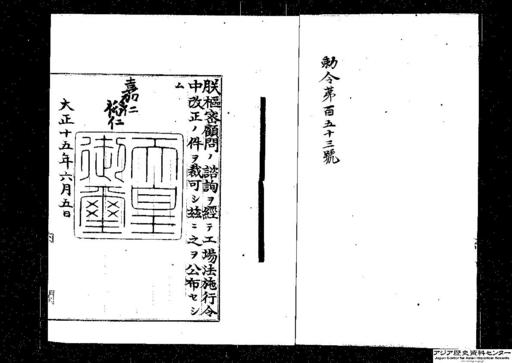 勅令第百五十三號
朕樞密顧問ノ諮詢ヲ經テ工場法施行令
中改正ノ件ヲ裁可シ茲ニ之ヲ公布セシ
ム
嘉仁
裕仁
天皇御璽
大正十五年六月五日
内閣
アジア歴史資料センター
Japan Center for Asian Historical Records